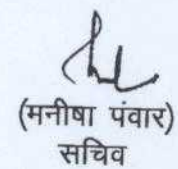 (मनीषा पंवार)
सचिव